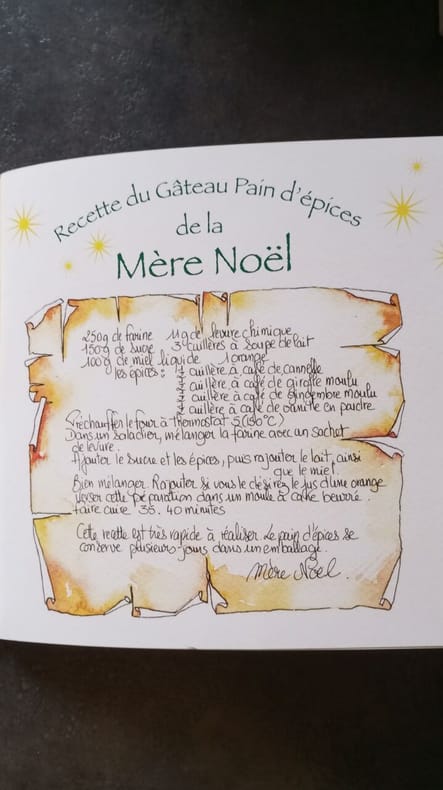 Recette du Gâteau Pain d'épices
de la
Mère Noël
250g de farine 11g de levure chimique
150g de sucre 3 cuillères à soupe de lait
100g de miel liquide 1 orange
les épices : cuillère à café de cannelle
cuillère à café de girofle moulu
cuillère à café de gingembre moulu
cuillère à café de vanille en poudre
Préchauffer le four à thermostat 5 (150°C)
Dans un saladier, mélanger la farine avec un sachet
de levure.
Ajouter le sucre et les épices, puis rajouter le lait, ainsi
que le miel.
Bien mélanger. Rajouter si vous le désirez le jus d'une orange
Verser cette préparation dans un moule à cake beurré.
faire cuire 35. 40 minutes
Cette recette est très rapide à réaliser. Le pain d'épices se
conserve plusieurs jours dans un emballage.
Mère Noël.